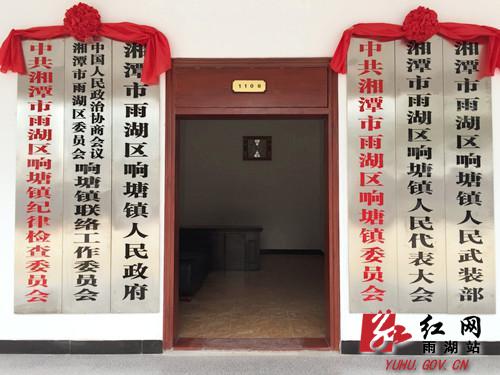 中共湘潭市雨湖区响塘镇纪律检查委员会
中国人民政治协商会议
湘潭市雨湖区委员会
响塘镇联络工作委员会
湘潭市雨湖区响塘镇人民政府
1106
中共湘潭市雨湖区响塘镇委员会
湘潭市雨湖区响塘镇人民代表大会
湘潭市雨湖区响塘镇人民武装部
红网
雨湖站
YUHU.GOV.CN